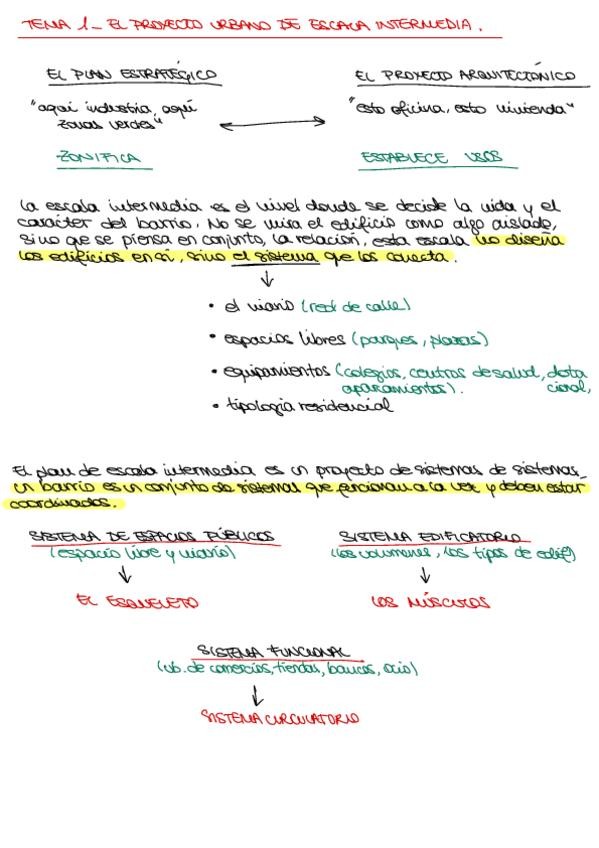 TEMA 1_ EL PROYECTO URBANO DE ESCALA INTERMEDIA.
EL PLAN ESTRATÉGICO
EL PROYECTO ARQUITECTÓNICO
"aquí industria, aquí
zonas verdes"
"esto oficina, esto vivienda"
ZONIFICA
ESTABLECE USOS
La escala intermedia es el nivel donde se decide la vida y el
carácter del barrio. No se mira el edificio como algo aislado,
sino que se piensa en conjunto, la relación, esta escala no diseña
los edificios en sí, sino el sistema que los conecta.
• el viario (red de calle)
• espacios libres (parques, plazas)
• equipamientos (colegios, centros de salud, dota
aparcamientos). cional,
• tipología residencial
El plan de escala intermedia es un proyecto de sistemas de sistemas_
un barrio es un conjunto de sistemas que funcionan a la vez y deben estar
coordinados.
SISTEMA DE ESPACIOS PÚBLICOS
SISTEMA EDIFICATORIO
(espacio libre y viario)
(los volúmenes, los tipos de edif)
EL ESQUELETO
LOS MÚSCULOS
SISTEMA FUNCIONAL
(ub. de comercios, tiendas, bancos, ocio)
SISTEMA CIRCULATORIO